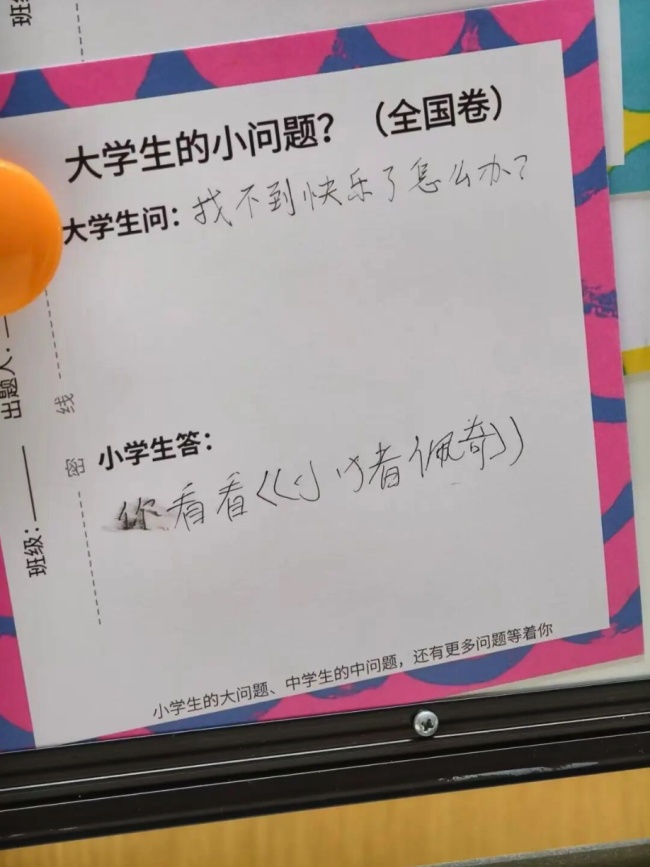 大学生的小问题？（全国卷）
大学生问：找不到快乐了怎么办？
小学生答：
你看看《小猪佩奇》
小学生的大问题、中学生的中问题，还有更多问题等着你
班级：
出题人：
密
线
班级